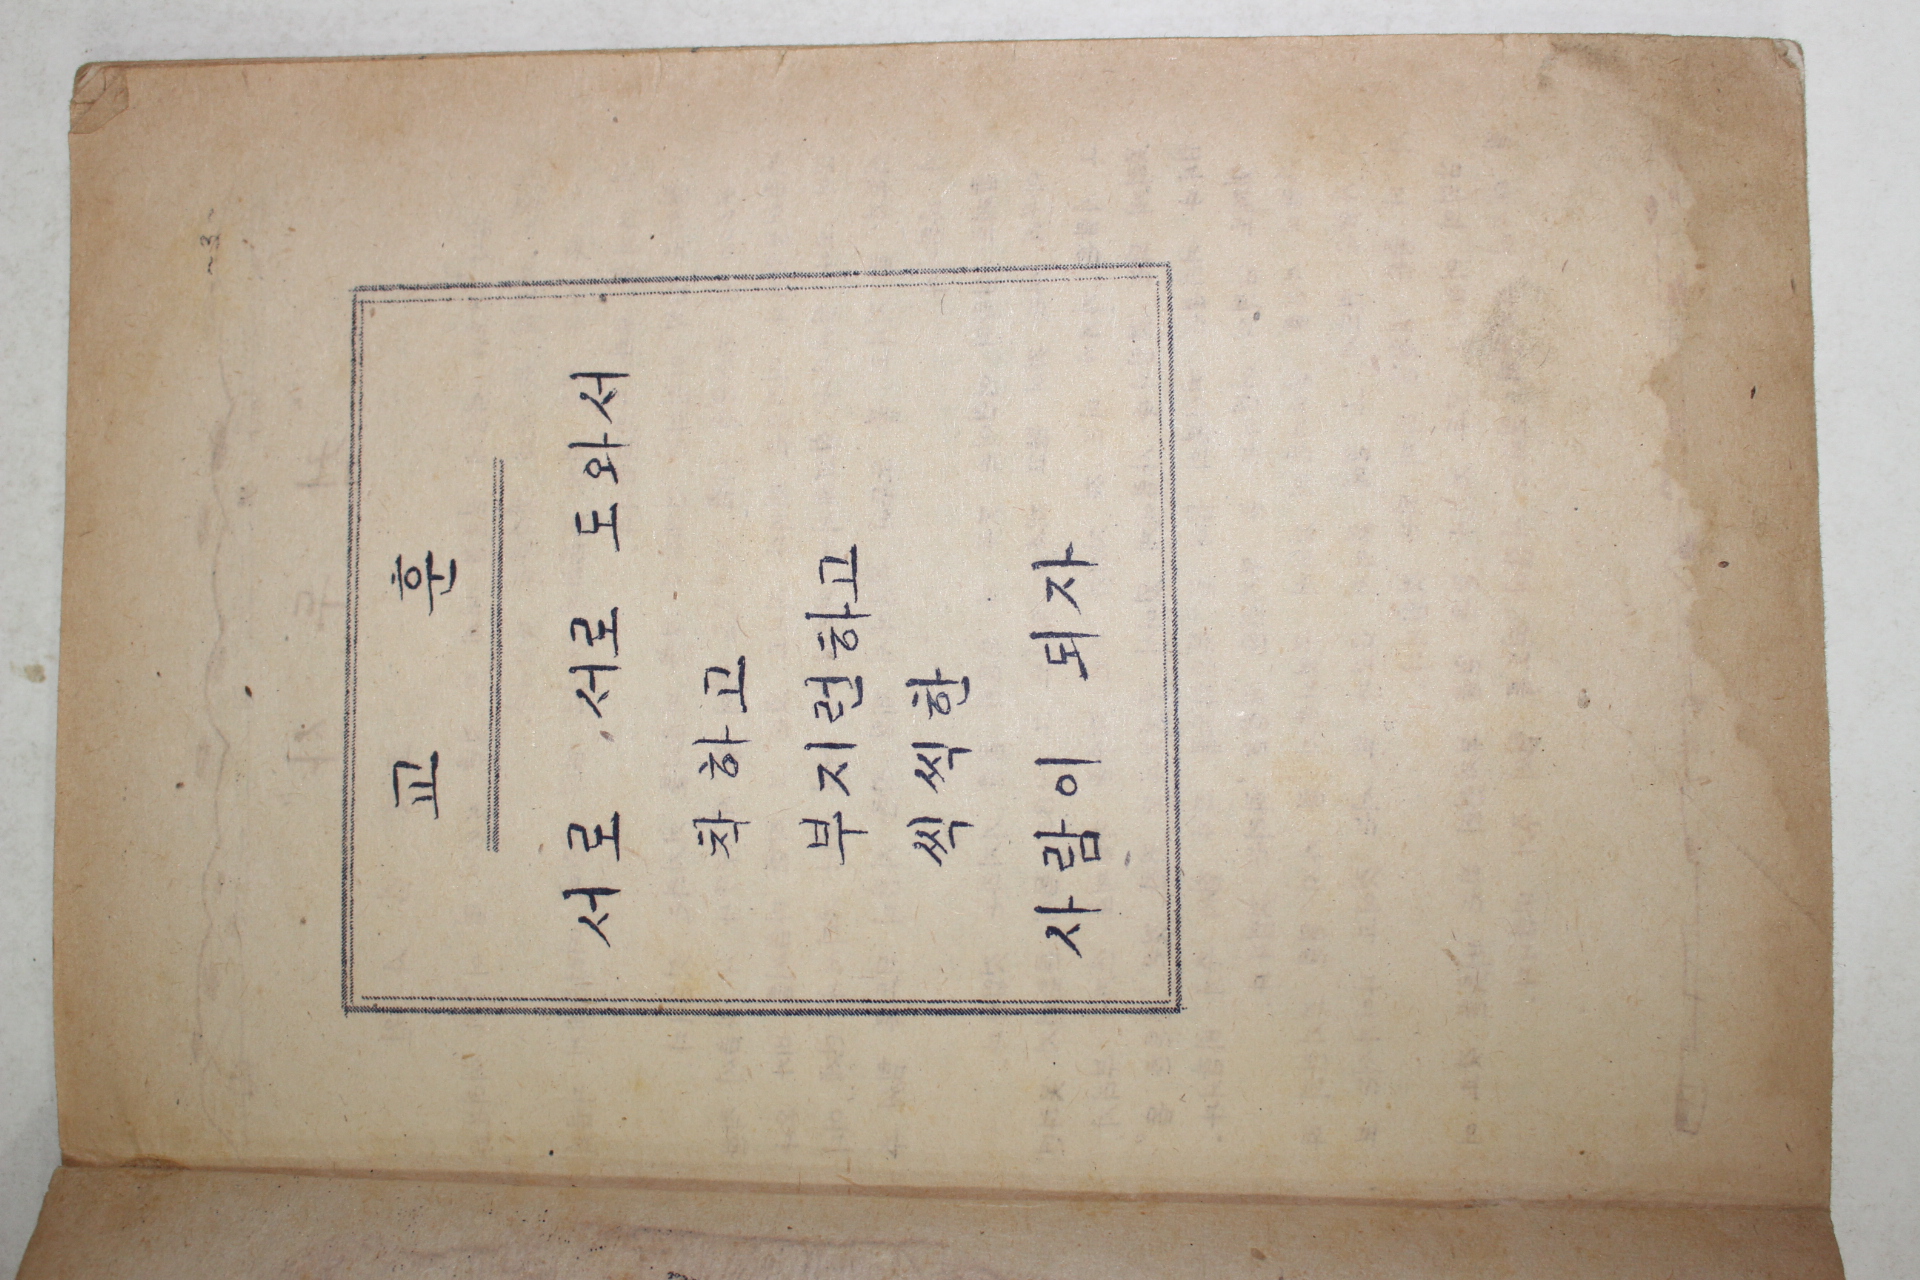 ~3~
교 훈
서로 서로 도와서
착하고
부지런하고
씩씩한
사람이 되자